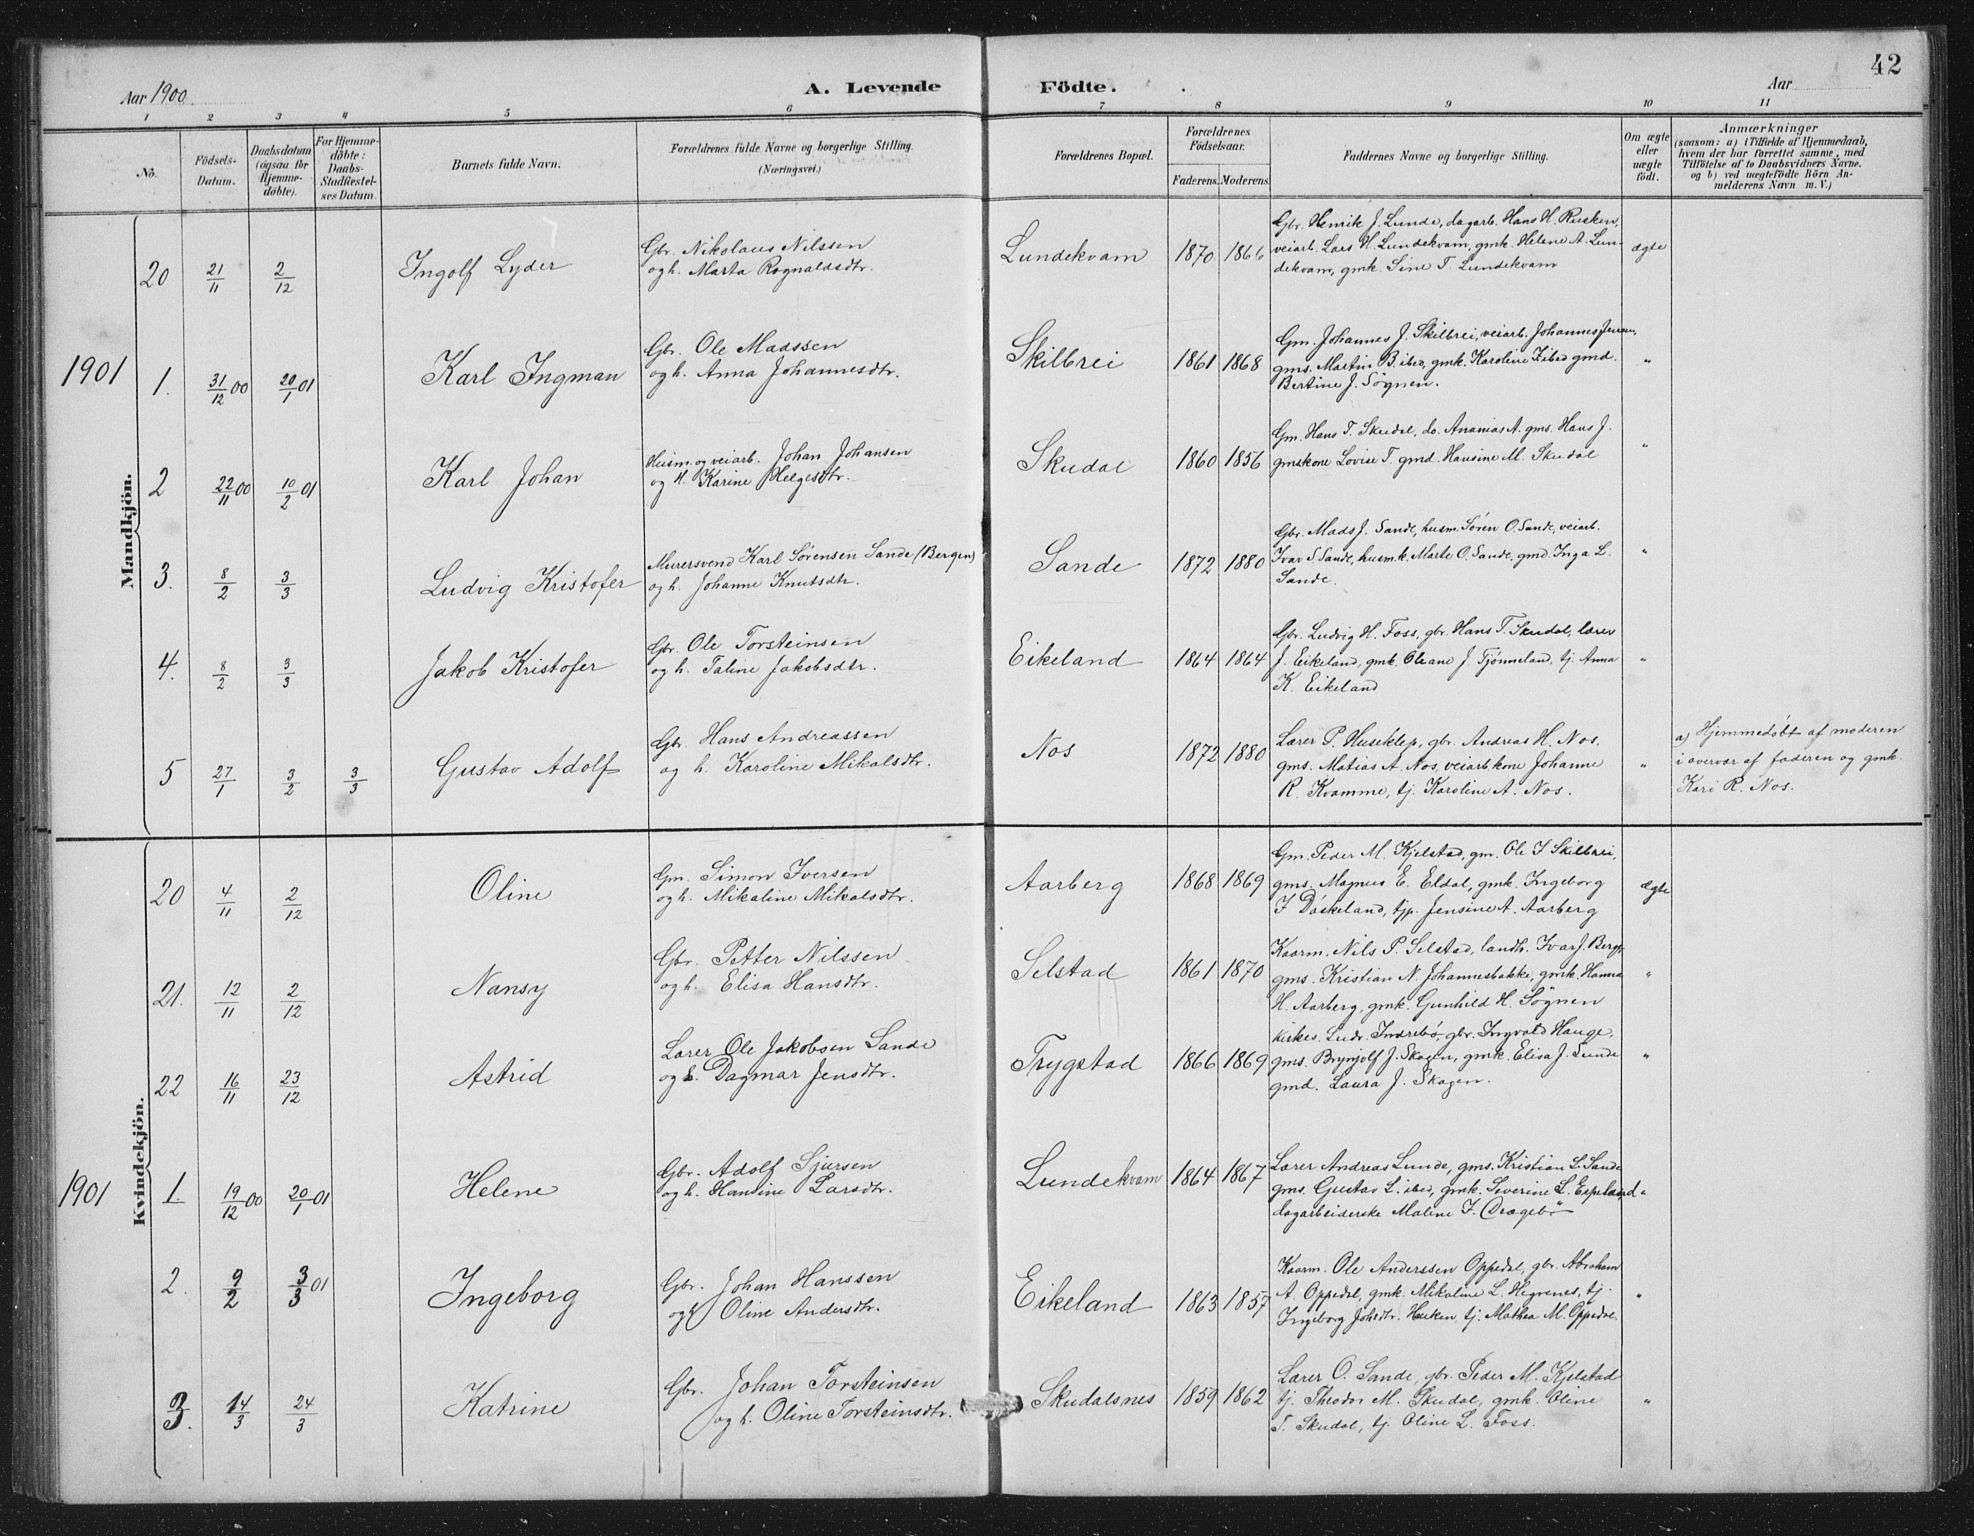 42
Aar 1900
A. Levende Födte.
Aar
1 2 3 4 5 6 7 8 9 10 11
No.
Födsels-Datum.
Daabsdatum (ogsaa for Hjemme-döbte).
For Hjemme-döbte: Daabs-Stadfæstel-ses Datum.
Barnets fulde Navn.
Forældrenes fulde Navne og borgerlige Stilling.
(Næringsvei.)
Forældrenes Bopæl.
Forældrenes Födselsaar.
Faderens. Moderens.
Faddernes Navne og borgerlige Stilling.
Om ægte eller uægte födt.
Anmærkninger
(saasom: a) i Tilfælde af Hjemmedaab,
hvem der har forrettet samme, med
Tilföielse af to Daabsvidners Navne.
og b) ved uægtefödte Börn An-
melderens Navn m. V.)
Mandkjön.
20 21/11 2/12 Ingolf Lyder
Gbr. Nikolaus Nilssen
og h. Marta Rognaldsdtr.
Lundekvam 1870 1866
Gbr. Henrik J. Lunde, dagarb. Hans H. Rusken,
veiarb. Lars H. Lundekvam, gmk. Helene A. Lun-
dekvam, gmk. Sine T. Lundekvam
ægte
1901
1. 31/12 00 20/1 01 Karl Ingman
Gbr. Ole Madssen
og h. Anna Johannesdtr.
Skilbrei 1861 1868
Gm. Johannes J. Skilbrei, veiarb. Johannes Jensen,
gms. Martin B. ibid, gmk. Karoline I. ibid gmd.
Bertine J. Søgnen.
"
2 22/11 00 10/2 01 Karl Johan
Husm. og veiarb. Johan Johansen
og H. Karine Helgesdtr.
Skudal 1860 1856
Gm. Hans T. Skudal, do. Ananias A. gms. Hans J.
gmskone Lovise T. gmd. Hansine M. Skudal
"
3. 8/2 3/3 Ludvig Kristofer
Murersvend Karl Sørensen Sande (Bergen)
og h. Johanne Knutsdtr.
Sande 1872 1880
Gbr. Mads J. Sande, husm. Søren O. Sande, veiarb.
Ivar S. Sande, husmk. Marte O. Sande, gmd. Inga L.
Sande.
"
4. 8/2 3/3 Jakob Kristofer
Gbr. Ole Torsteinsen
og h. Taline Jakobsdtr.
Eikeland 1864 1864
Gbr. Ludvig H. Foss, gbr. Hans T. Skudal, lærer
J. Eikeland, gmk. Oleane J. Tjønneland, tj. Anna
K. Eikeland
"
5 27/1 3/2 3/3 Gustav Adolf
Gbr. Hans Andreassen
og h. Karoline Mikalsdtr.
Nos 1872 1880
Lærer P. Huseklep, gbr. Andreas H. Nos,
gms. Matias A. Nos, veiarb.kone Johanne
R. Kvamme, tj. Karoline A. Nos.
"
a) Hjemmedøbt af moderen
i overvær af faderen og gmk.
Kari R. Nos.
Kvindekjön.
20 4/11 2/12 Oline
Gm. Simon Iversen
og h. Mikaline Mikalsdtr.
Aarberg 1868 1869
Gm. Peder M. Kjelstad, gm. Ole I Skilbrei,
gms. Magnus E. Eldal, gmk. Ingeborg
I Døskeland, tjp. Jensine A. Aarberg
ægte
21. 12/11 2/12 Nansy
Gbr. Petter Nilssen
og h. Elisa Hansdtr.
Selstad 1861 1870
Kaarm. Nils P. Selstad, landh. Ivar J. Berge,
gms. Kristian N. Johannesbakke, gmk. Hanna
H. Aarberg, gmk. Gunhild H. Søgnen
"
22 16/11 23/12 Astrid
Lærer Ole Jakobsen Sande
og h. Dagmar Jensdtr.
Trygstad 1866 1869
Kirkes. Ludv. Indrebø, gbr. Ingvald Hauge,
gms. Brynjolf J. Skagen, gmk. Elisa J. Sunde
gmd. Laura J. Skagen.
"
1901
1 19/12 00 20/1 01 Helene
Gbr. Adolf Sjursen
og h. Hansine Larsdtr.
Lundekvam 1864 1867
Lærer Andreas Lunde, gms. Kristian L. Sande
gms. Gustav L. ibid, gmk. Severine L. Espeland
dagarbeiderske Maline I. Dragebø
"
2. 9/2 3/3 01 Ingeborg
Gbr. Johan Hanssen
og h. Oline Andersdtr.
Eikeland 1863 1857
Kaarm. Ole Anderssen Oppedal, gbr. Abraham
A. Oppedal, gmk. Mikaline L. Hegrenes, tj.
Ingeborg Johsdtr. Husken, tj. Mathea M. Oppedal.
"
3. 14/3 24/3 Katrine
Gbr. Johan Torsteinsen
og h. Oline Torsteinsdtr.
Skudalsnes 1859 1862
Lærer O. Sande, gbr. Peder M. Kjelstad
tj. Theodor M. Skudal, gmk. Oline
T. Skudal, tj. Oline L. Foss.
"